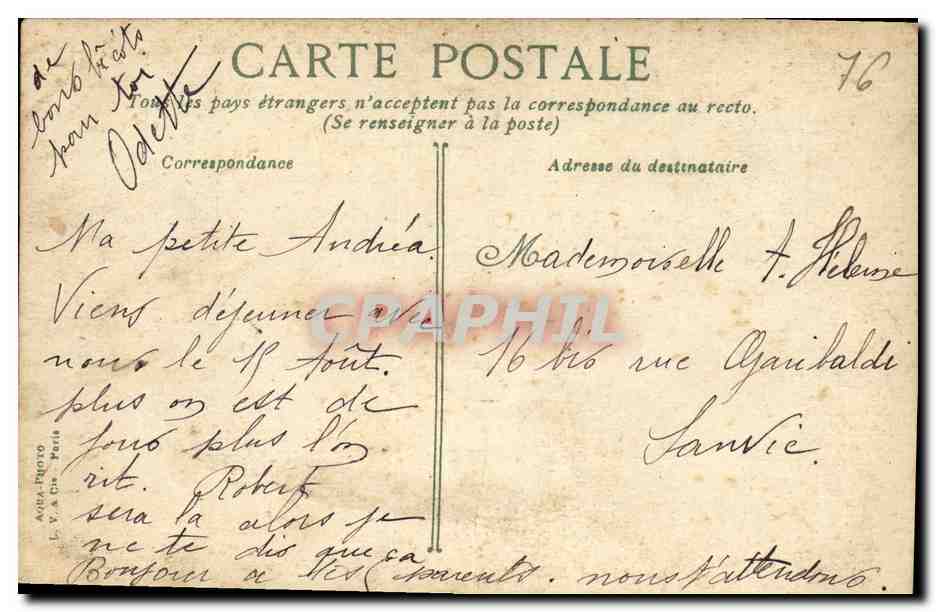 de
bons bécots
pour toi
Odette
CARTE POSTALE
76
Tous les pays étrangers n'acceptent pas la correspondance au recto.
(Se renseigner à la poste)
Correspondance
Adresse du destinataire
Ma petite Andréa.
Viens déjeuner avec
nous le 15 Août.
plus on est de
fous plus l'on
rit. Robert
sera la alors je
ne te dis que ça
Bonjour a tes parents. nous t'attendons.
Mademoiselle A.
16 bis rue Garibaldi
Sanvic.
AQUA-PHOTO
L. V. & Cie Paris
CPAPHIL